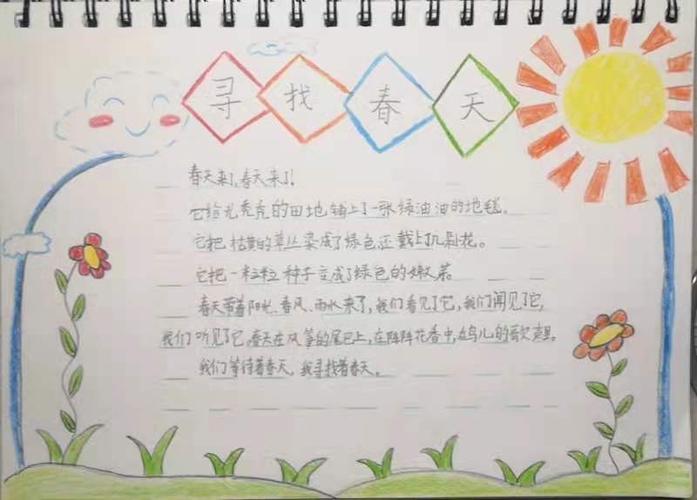 寻找春天
春天来了,春天来了!
它给光秃秃的田地铺上了一张绿油油的地毯。
它把枯黄的草丛染成了绿色,还戴上几朵花。
它把一粒粒种子变成了绿色的嫩芽。
春天带着阳光、春风、雨水来了,我们看见了它,我们闻见了它,
我们听见了它,春天在风筝的尾巴上,在阵阵花香中,在鸟儿的歌声里。
我们等待着春天,我寻找着春天。